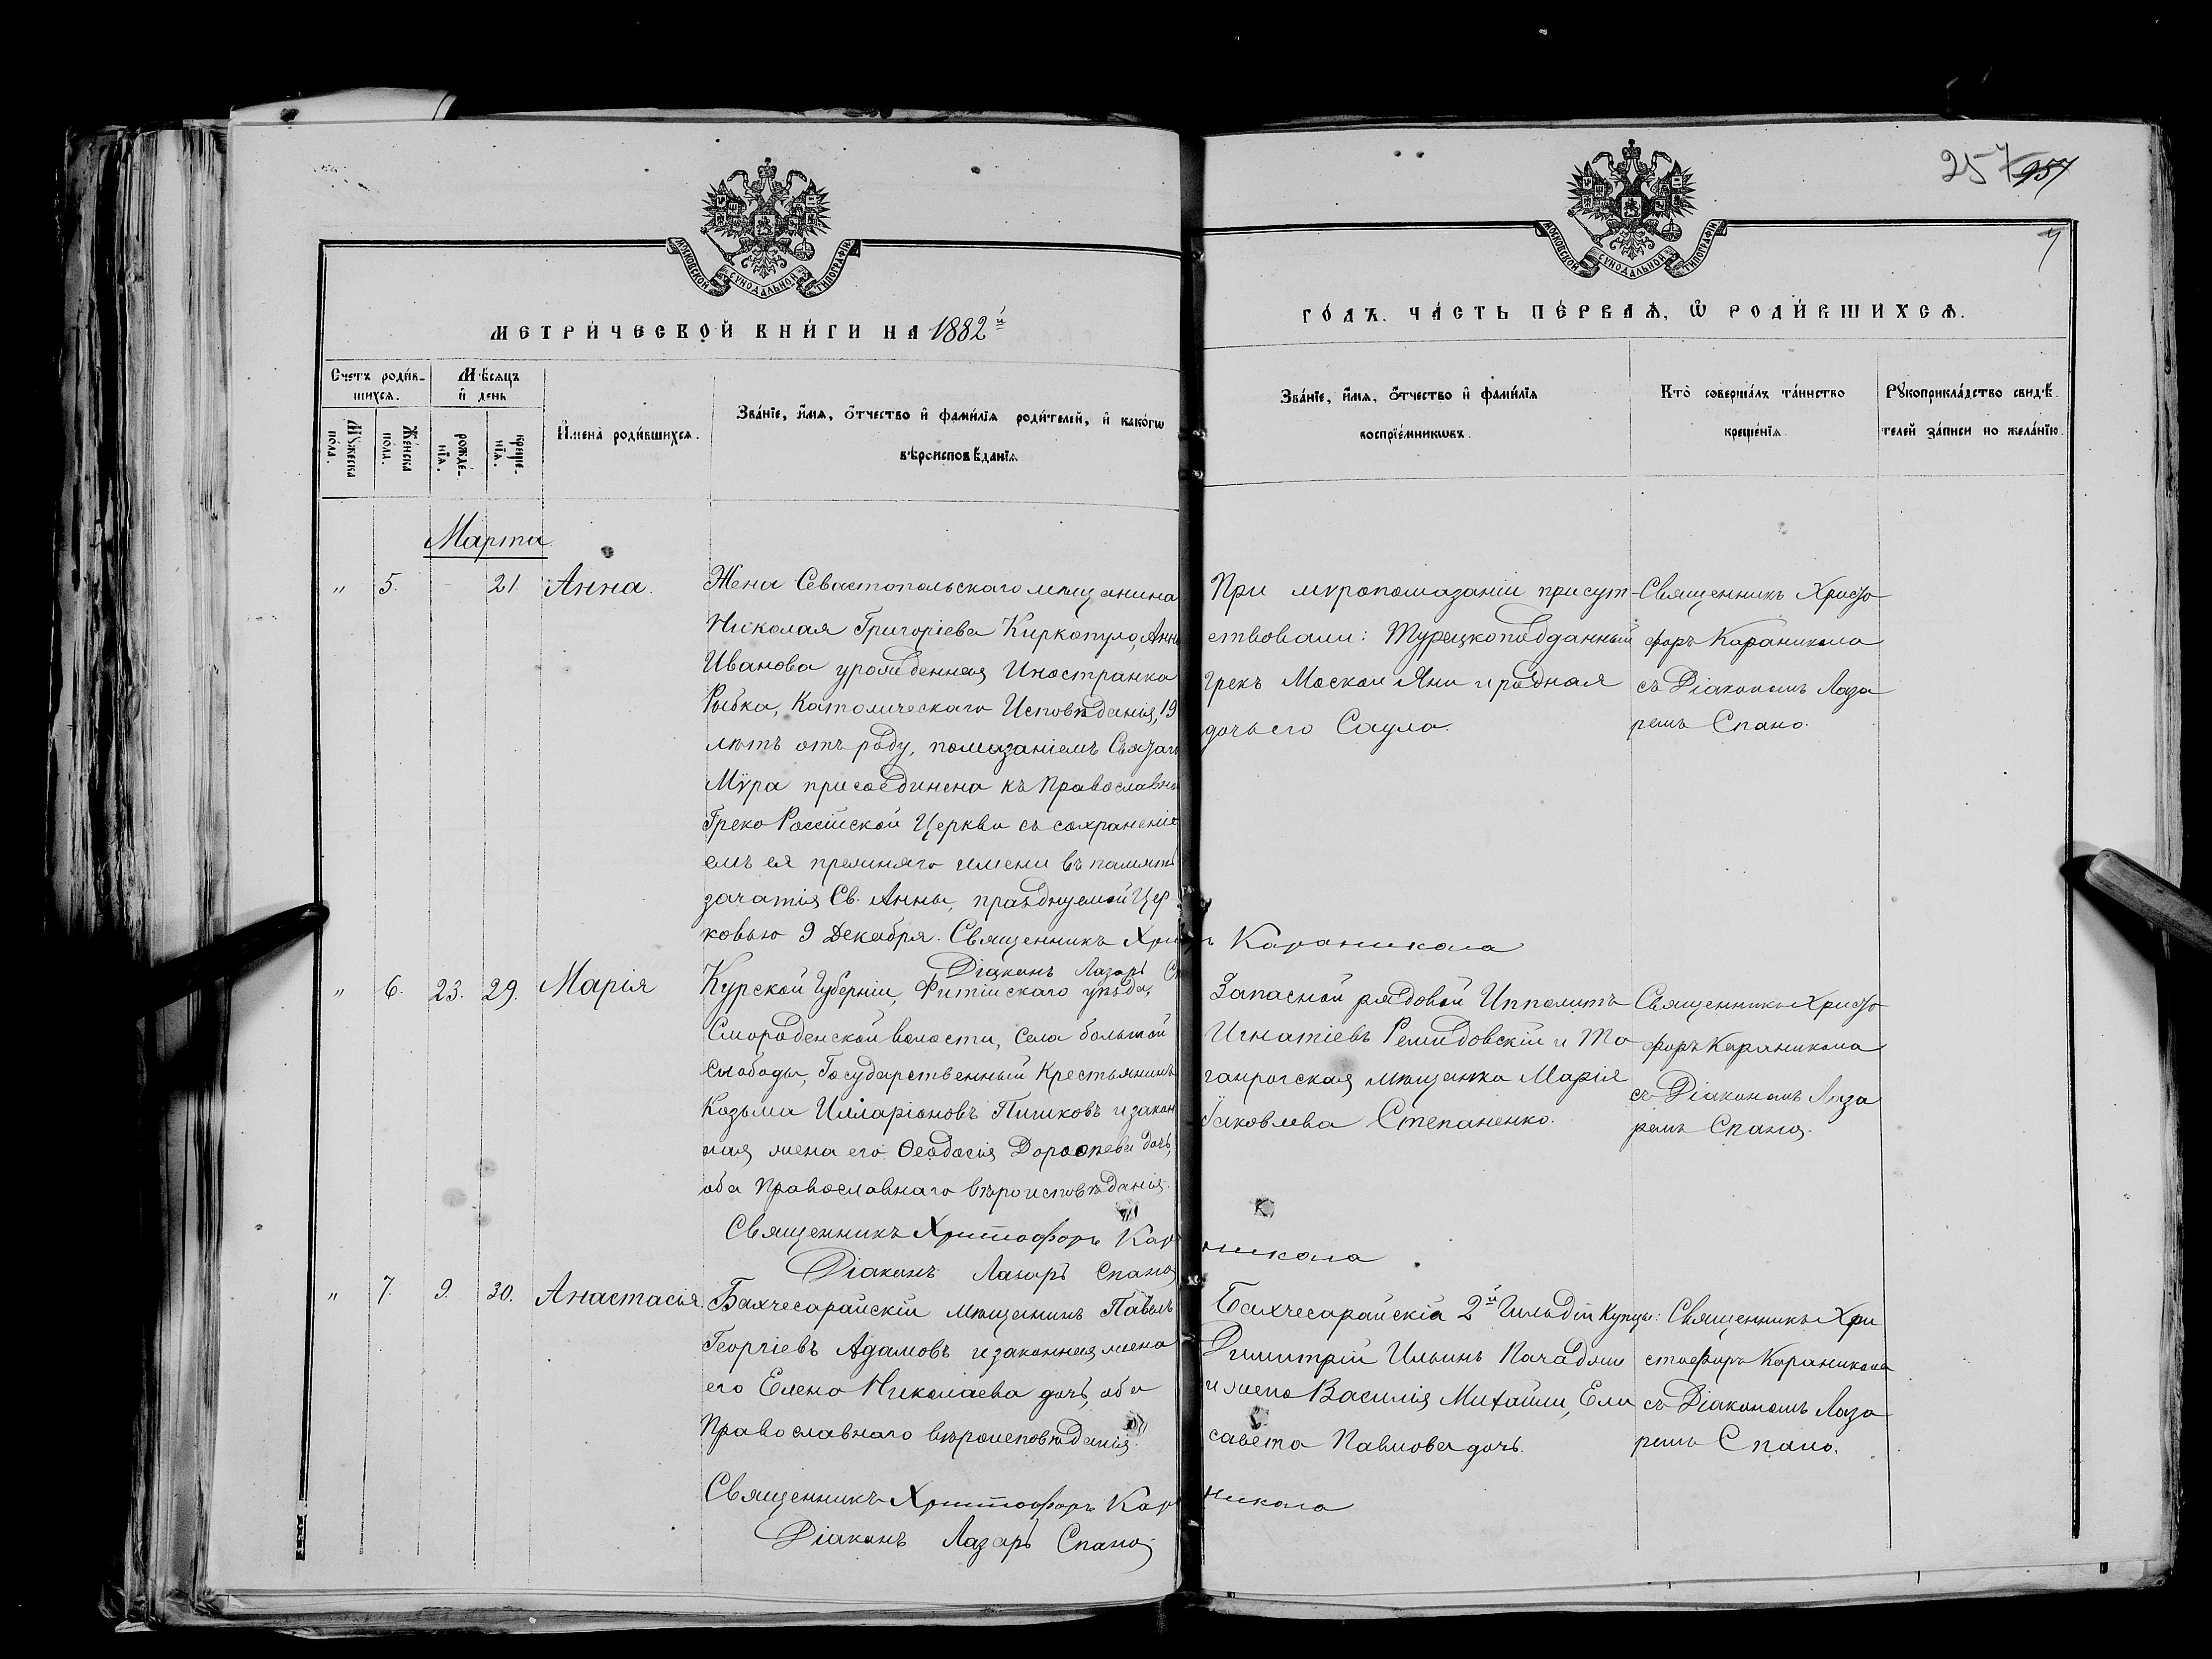 257 257
7
МОСКОВСКОЙ СУНОДАЛЬНОЙ ТИПОГРАФІИ
МОСКОВСКОЙ СУНОДАЛЬНОЙ ТИПОГРАФІИ
МЕТРИ́ЧЕСКОЙ КНИ́ГИ НА 1882й
ГО́ДЪ. ЧА́СТЬ ПЕ́РВАѦ, Ѿ РОДИ́ВШИХСѦ.
Счетъ роди́в-
шихсѧ.
Мꙋжеска
по́ла.
Же́нска
по́ла.
Мѣ́сѧцъ
и҆ день
рожде́-
нїѧ.
креще́-
нїѧ.
И҆мена̀ роди́вшихсѧ.
Зва́нїе, и҆́мѧ, ѻ҆́тчество и҆ фами́лїѧ роди́телей, и҆ како́гѡ
вѣроисповѣ́данїѧ.
Зва́нїе, и҆́мѧ, ѻ҆́тчество и҆ фами́лїѧ
воспрїе́мникѡвъ.
Кто̀ соверша́лъ та́инство
креще́нїѧ.
Рꙋкоприкла́дство свидѣ́-
телей за́писи по жела́нїю.
Марта
" 5. 21. Анна.
Жена Севастопольскаго мѣщанина
Николая Григоріева Киркопуло, Анна
Иванова урожденная Иностранка
Рыбка, Католическаго Исповѣданія, 19
лѣтъ отъ роду, помазаніемъ Святаго
Мѵра присоединена къ Православно
Греко Россійской Церкви съ сохранені
емъ ея прежняго имени въ память
зачатія Св. Анны, празднуемой Цер
ковью 9 Декабря. Священникъ Караникола
Діаконъ Лазарь
При мѵропомазаніи присут-
ствовали: Турецкоподданный
грекъ Москои Яни и родная
дочь его Саула.
Священникъ Христо
форъ Караникола
съ Діакономъ Лаза
ремъ Спано.
" 6. 23. 29. Марія
Курской Губерніи, уѣзда,
Смороденской волости, села большой
слободы, Государственный Крестьянинъ
Козьма Илларіоновъ Пишковъ и закон
ная жена его Ѳеодосія Дороѳеева дочь,
оба Православнаго вѣроисповѣданія.
Священникъ Христофоръ Караникола
Діаконъ Лазарь Спано
Запасной рядовой Ипполитъ
Игнатіевъ Ремидовскій и Та
ганрогская мѣщанка Марія
Яковлева Степаненко.
Священникъ Христо
форъ Караникола
съ Діакономъ Лаза
ремъ Спано.
" 7. 9. 30. Анастасія.
Бахчесарайскій мѣщанинъ Павелъ
Георгіевъ Адамовъ и законная жена
его Елена Николаева дочь, оба
Православнаго вѣроисповѣданія.
Священникъ Христофоръ Караникола
Діаконъ Лазарь Спано
Бахчесарайскій 2й Гильдіи Купцы:
Димитрій Ильинъ Пачаджи
и жена Василія Михайли, Ели
савета Павлова дочь.
Священникъ Хри
стофоръ Караникола
съ Діакономъ Лаза
ремъ Спано.